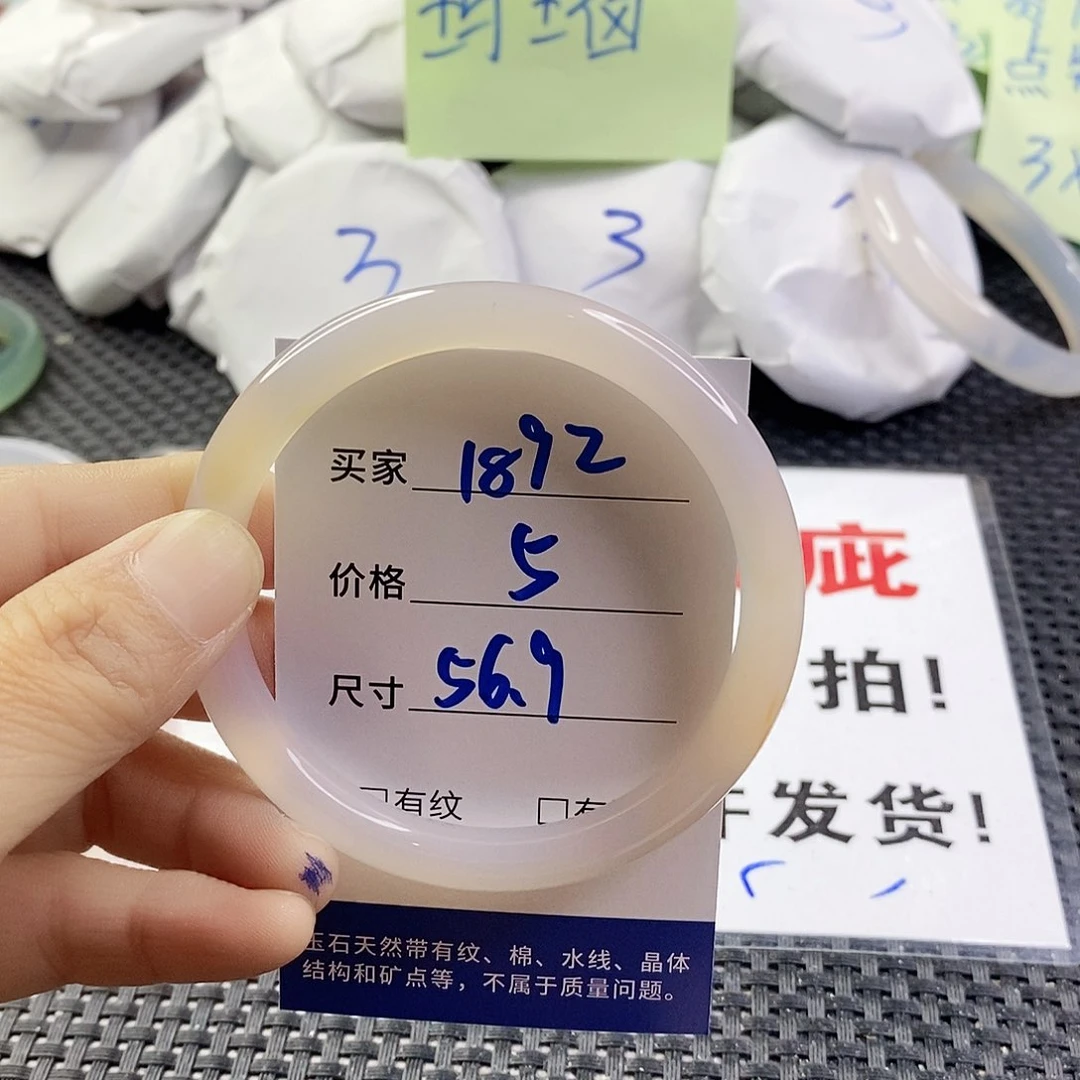 玛瑙
点
3
3
3
买家 1892
价格 5
尺寸 56.9
有纹
疵
拍！
发货！
玉石天然带有纹、棉、水线、晶体
结构和矿点等，不属于质量问题。